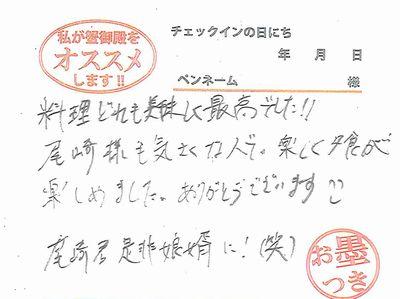 私が蟹御殿を
オススメ
します!!
チェックインの日にち
年 月 日
ペンネーム 様
料理どれも美味しく最高でした!!
尾崎様も気さくな人で。楽しく夕食が
楽しめました。ありがとうございます
尾崎君是非娘婿に!(笑)
お墨
つき